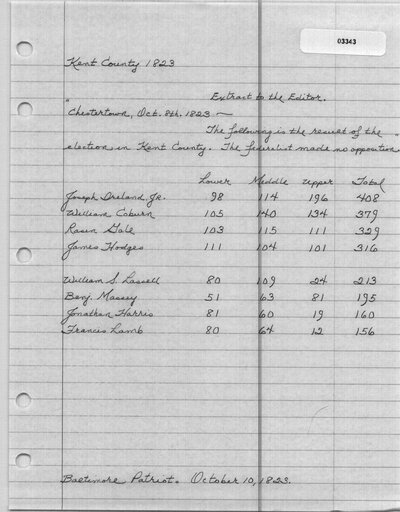 03343
Kent County 1823
Extract to the Editor.
"Chestertown, Oct. 8th. 1823 —
The following is the result of the "
election in Kent County. The federalist made no opposition
Lower Middle Upper Total
Joseph Ireland, Jr. 98 114 196 408
William Coburn 105 140 134 379
Rasin Gale 103 115 111 329
James Hodges 111 104 101 316
William S. Lassell 80 109 24 213
Benj. Massey 51 63 81 195
Jonathan Harris 81 60 19 160
Francis Lamb 80 64 12 156
Baltimore Patriot. October 10, 1823.